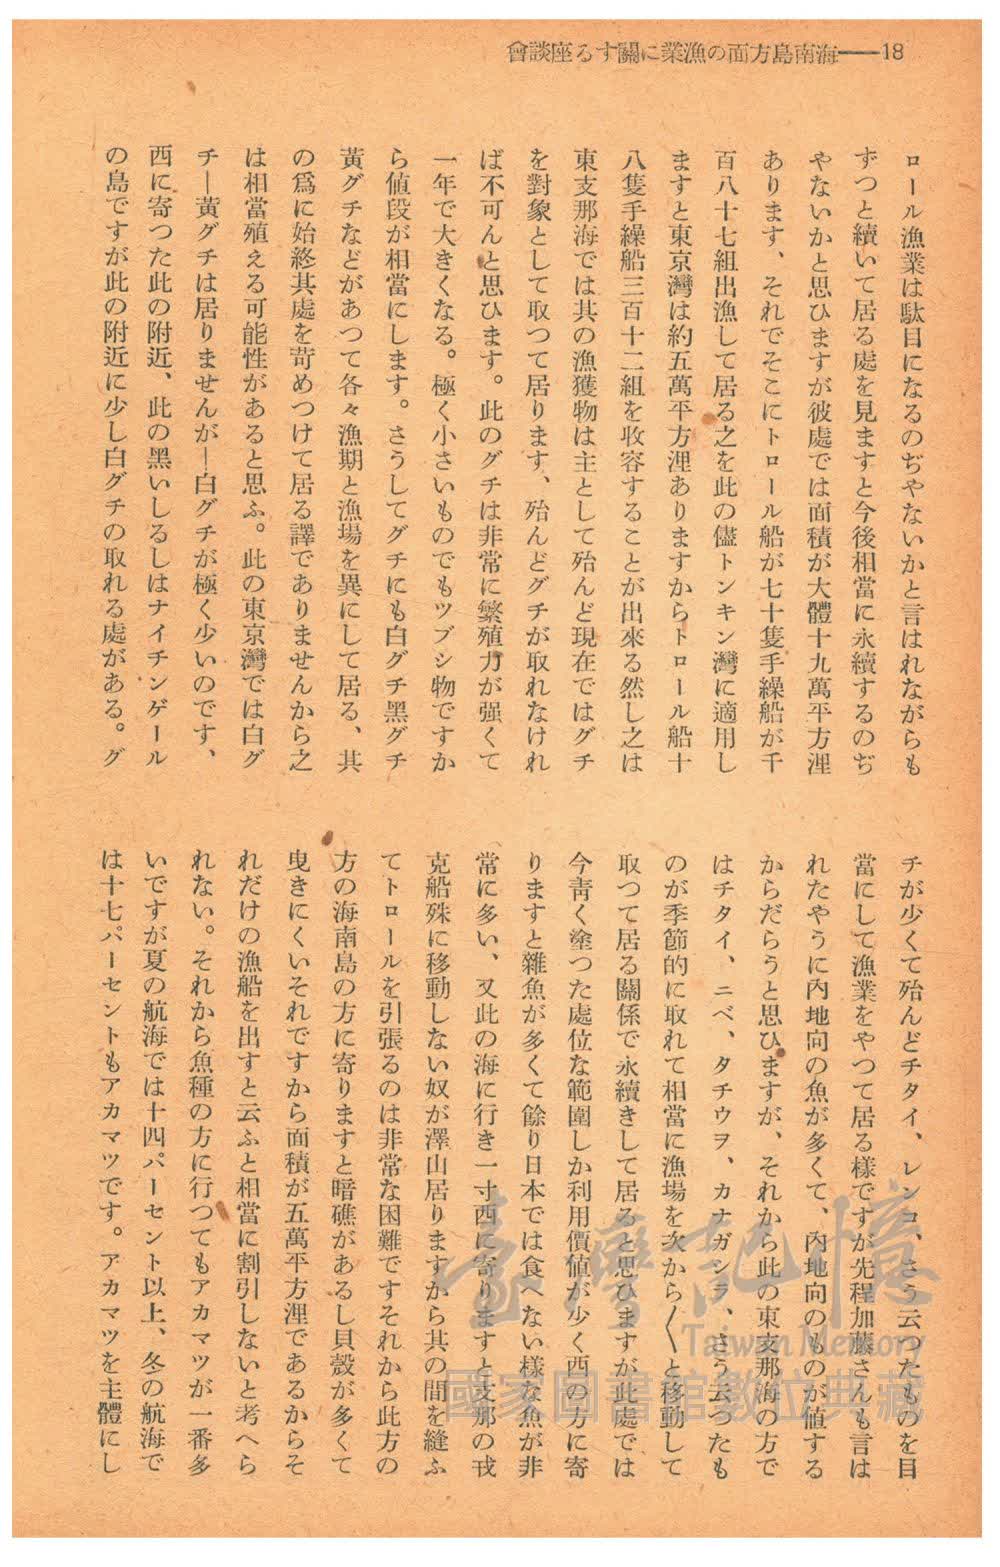 18——海南島方面の漁業に關する座談會
ロール漁業は駄目になるのぢやないかと言はれながらも
ずつと續いて居る處を見ますと今後相當に永續するのぢ
やないかと思ひますが彼處では面積が大體十九萬平方浬
あります、それでそこにトロール船が七十隻手繰船が千
百八十七組出漁して居る之を此の儘トンキン灣に適用し
ますと東京灣は約五萬平方浬ありますからトロール船十
八隻手繰船三百十二組を收容することが出來る然し之は
東支那海では其の漁獲物は主として殆んど現在ではグチ
を對象として取つて居ります、殆んどグチが取れなけれ
ば不可んと思ひます。此のグチは非常に繁殖力が强くて
一年で大きくなる。極く小さいものでもツブシ物ですか
ら値段が相當にします。さうしてグチにも白グチ黑グチ
黃グチなどがあつて各々漁期と漁場を異にして居る、其
の爲に始終其處を苛めつけて居る譯でありませんから之
は相當殖える可能性があると思ふ。此の東京灣では白グ
チ—黃グチは居りませんが—白グチが極く少いのです、
西に寄つた此の附近、此の黑いしるしはナイチンゲール
の島ですが此の附近に少し白グチの取れる處がある。グ
チが少くて殆んどチタイ、レンコ、さう云つたものを目
當にして漁業をやつて居る樣ですが先程加藤さんも言は
れたやうに內地向の魚が多くて、內地向のものが値する
からだらうと思ひますが、それから此の東支那海の方で
はチタイ、ニベ、タチウヲ、カナガシラ、さう云つたも
のが季節的に取れて相當に漁場を次から〱と移動して
取つて居る關係で永續きして居ると思ひますが此處では
今靑く塗つた處位な範圍しか利用價値が少く西の方に寄
りますと雜魚が多くて餘り日本では食べない樣な魚が非
常に多い、又此の海に行き一寸西に寄りますと支那の戎
克船殊に移動しない奴が澤山居りますから其の間を縫ふ
てトロールを引張るのは非常な困難ですそれから此方の
方の海南島の方に寄りますと暗礁があるし貝殼が多くて
曳きにくいそれですから面積が五萬平方浬であるからそ
れだけの漁船を出すと云ふと相當に割引しないと考へら
れない。それから魚種の方に行つてもアカマツが一番多
いですが夏の航海では十四パーセント以上、冬の航海で
は十七パーセントもアカマツです。アカマツを主體にし
臺灣記憶
Taiwan Memory
國家圖書館數位典藏